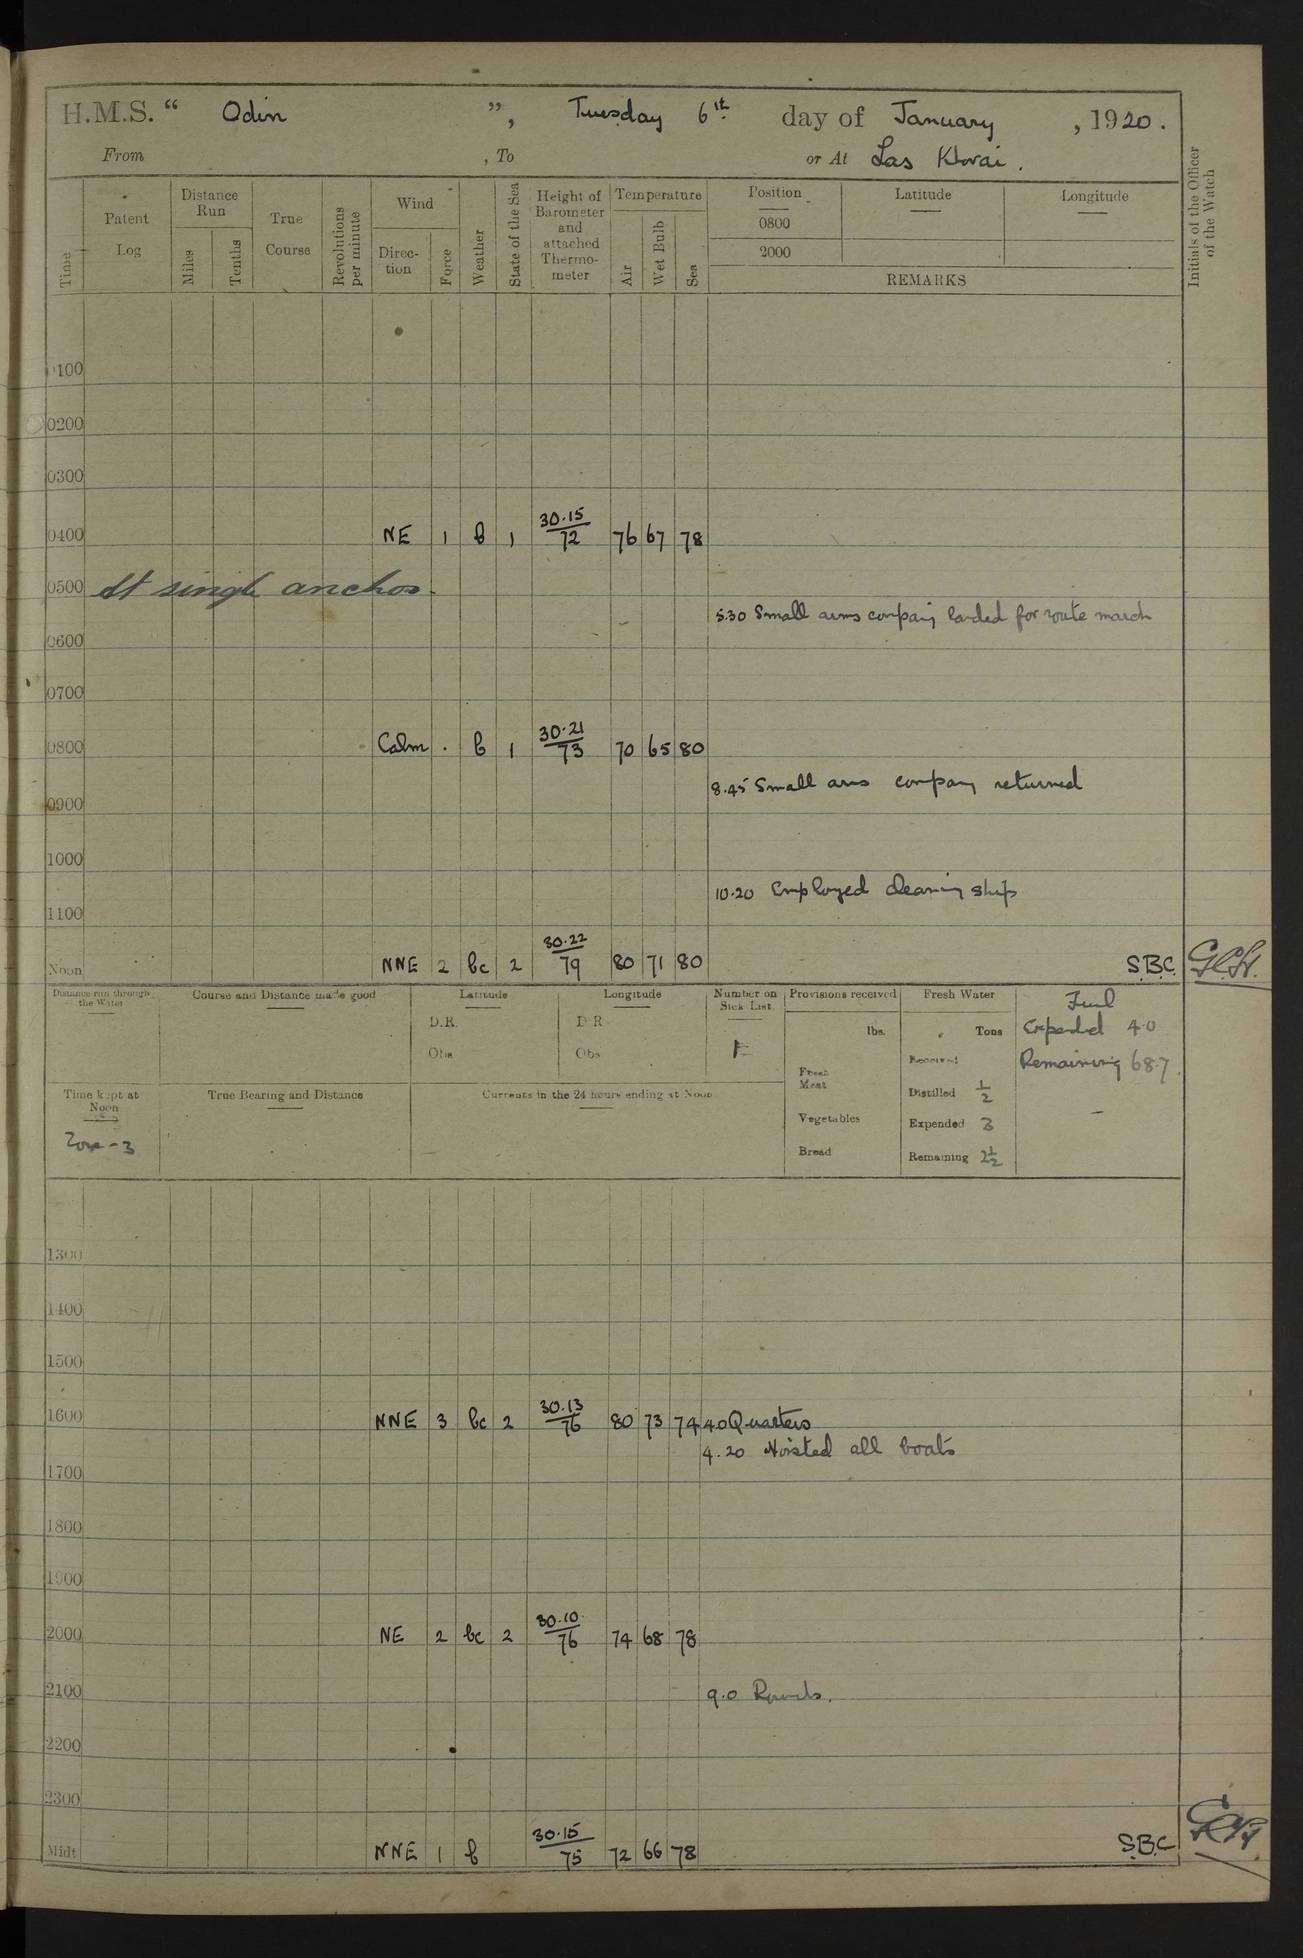 H.M.S. " Odin ", Tuesday 6th day of January, 1920.
From , To or At Las Khorai.
Time Patent Log Distance Run Miles Tenths True Course Revolutions per minute Wind Direction Force Weather State of the Sea Height of Barometer and attached Thermometer Temperature Air Wet Bulb Sea Position Latitude Longitude
0800
2000
REMARKS
Initials of the Officer of the Watch
0100
0200
0300
0400 NE 1 b 1 30.15/72 76 67 78
0500 At single anchor.
5.30 Small arms company landed for route march
0600
0700
0800 Calm . b 1 30.21/73 70 65 80
8.45 Small arms company returned
0900
1000
10.20 Employed cleaning ship
1100
Noon NNE 2 bc 2 30.22/79 80 71 80 S.B.C.
Distance run through the Water Course and Distance made good Latitude Longitude Number on Sick List Provisions received Fresh Water Fuel
D.R. D R lbs. Tons Expended 4.0
Obs Obs Received Remaining 68.7
Fresh Meat Distilled ½
Time kept at Noon True Bearing and Distance Currents in the 24 hours ending at Noon
Vegetables Expended 3
Zone -3 Bread Remaining 2½
1300
1400
1500
1600 NNE 3 bc 2 30.13/76 80 73 74 4.0 Quarters
4.20 Hoisted all boats
1700
1800
1900
2000 NE 2 bc 2 30.10/76 74 68 78
2100 9.0 Rounds.
2200
2300
Midt NNE 1 b 30.15/75 72 66 78 S.B.C